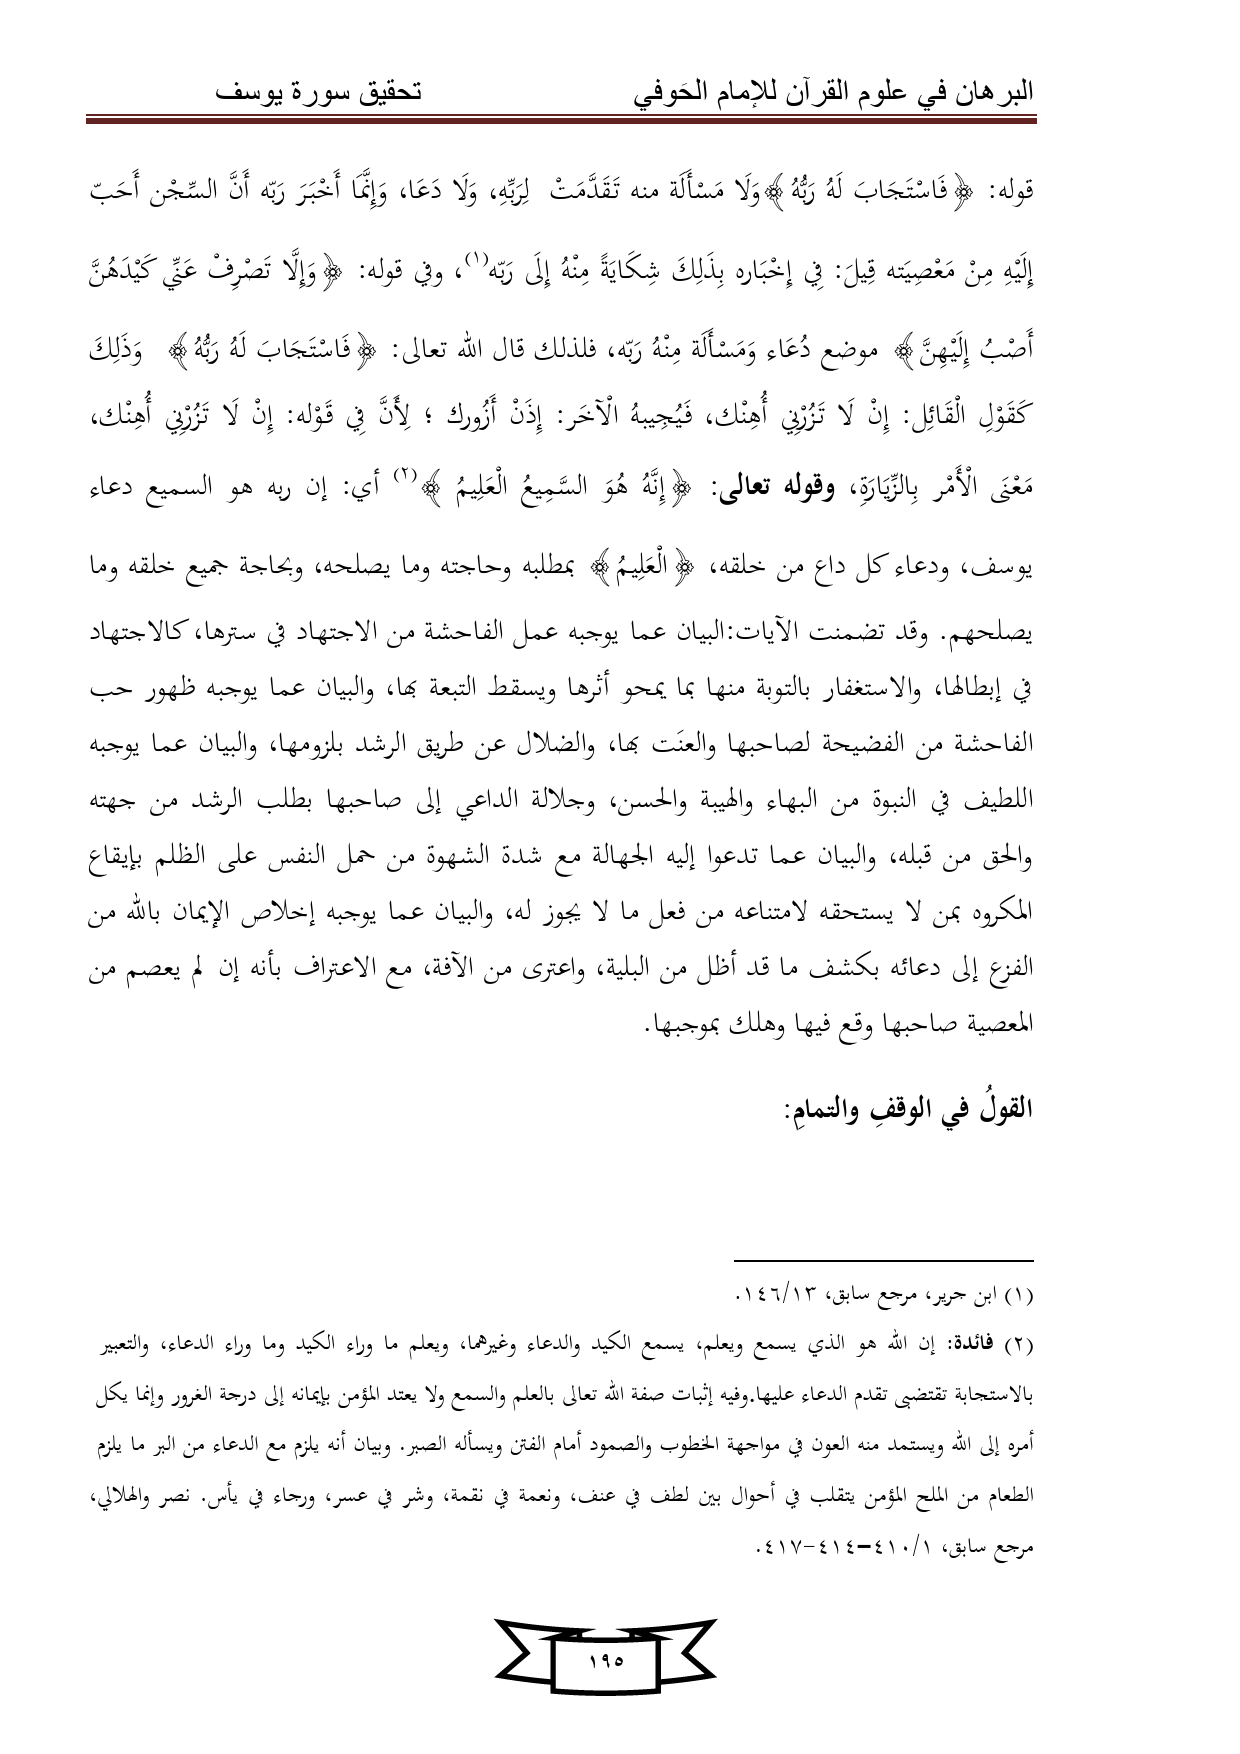 البرهان في علوم القرآن للإمام الحَوفي تحقيق سورة يوسف
قوله: ﴿فَاسْتَجَابَ لَهُ رَبُّهُ﴾وَلَا مَسْأَلَة منه تَقَدَّمَتْ لِرَبِّهِ، وَلَا دَعَا، وَإِنَّمَا أَخْبَرَ رَبّه أَنَّ السِّجْن أَحَبّ
إِلَيْهِ مِنْ مَعْصِيَته قِيلَ: فِي إِخْبَاره بِذَلِكَ شِكَايَةً مِنْهُ إِلَى رَبّه(١)، وفي قوله: ﴿وَإِلَّا تَصْرِفْ عَنِّي كَيْدَهُنَّ
أَصْبُ إِلَيْهِنَّ﴾ موضع دُعَاء وَمَسْأَلَة مِنْهُ رَبّه، فلذلك قال الله تعالى: ﴿فَاسْتَجَابَ لَهُ رَبُّهُ﴾ وَذَلِكَ
كَقَوْلِ الْقَائِل: إِنْ لَا تَزُرْنِي أُهِنْك، فَيُجِيبهُ الْآخَر: إِذَنْ أَزُورك ؛ لِأَنَّ فِي قَوْله: إِنْ لَا تَزُرْنِي أُهِنْك،
مَعْنَى الْأَمْر بِالزِّيَارَةِ، وقوله تعالى: ﴿إِنَّهُ هُوَ السَّمِيعُ الْعَلِيمُ﴾(٢) أي: إن ربه هو السميع دعاء
يوسف، ودعاء كل داع من خلقه، ﴿الْعَلِيمُ﴾ بمطلبه وحاجته وما يصلحه، وبحاجة جميع خلقه وما
يصلحهم. وقد تضمنت الآيات:البيان عما يوجبه عمل الفاحشة من الاجتهاد في سترها، كالاجتهاد
في إبطالها، والاستغفار بالتوبة منها بما يمحو أثرها ويسقط التبعة بها، والبيان عما يوجبه ظهور حب
الفاحشة من الفضيحة لصاحبها والعنَت بها، والضلال عن طريق الرشد بلزومها، والبيان عما يوجبه
اللطيف في النبوة من البهاء والهيبة والحسن، وجلالة الداعي إلى صاحبها بطلب الرشد من جهته
والحق من قبله، والبيان عما تدعوا إليه الجهالة مع شدة الشهوة من حمل النفس على الظلم بإيقاع
المكروه بمن لا يستحقه لامتناعه من فعل ما لا يجوز له، والبيان عما يوجبه إخلاص الإيمان بالله من
الفزع إلى دعائه بكشف ما قد أظل من البلية، واعترى من الآفة، مع الاعتراف بأنه إن لم يعصم من
المعصية صاحبها وقع فيها وهلك بموجبها.
القولُ في الوقفِ والتمامِ:
(١) ابن جرير، مرجع سابق، ١٤٦/١٣.
(٢) فائدة: إن الله هو الذي يسمع ويعلم، يسمع الكيد والدعاء وغيرهما، ويعلم ما وراء الكيد وما وراء الدعاء، والتعبير
بالاستجابة تقتضي تقدم الدعاء عليها.وفيه إثبات صفة الله تعالى بالعلم والسمع ولا يعتد المؤمن بإيمانه إلى درجة الغرور وإنما يكل
أمره إلى الله ويستمد منه العون في مواجهة الخطوب والصمود أمام الفتن ويسأله الصبر. وبيان أنه يلزم مع الدعاء من البر ما يلزم
الطعام من الملح المؤمن يتقلب في أحوال بين لطف في عنف، ونعمة في نقمة، وشر في عسر، ورجاء في يأس. نصر والهلالي،
مرجع سابق، ٤١٠/١–٤١٤-٤١٧.
١٩٥